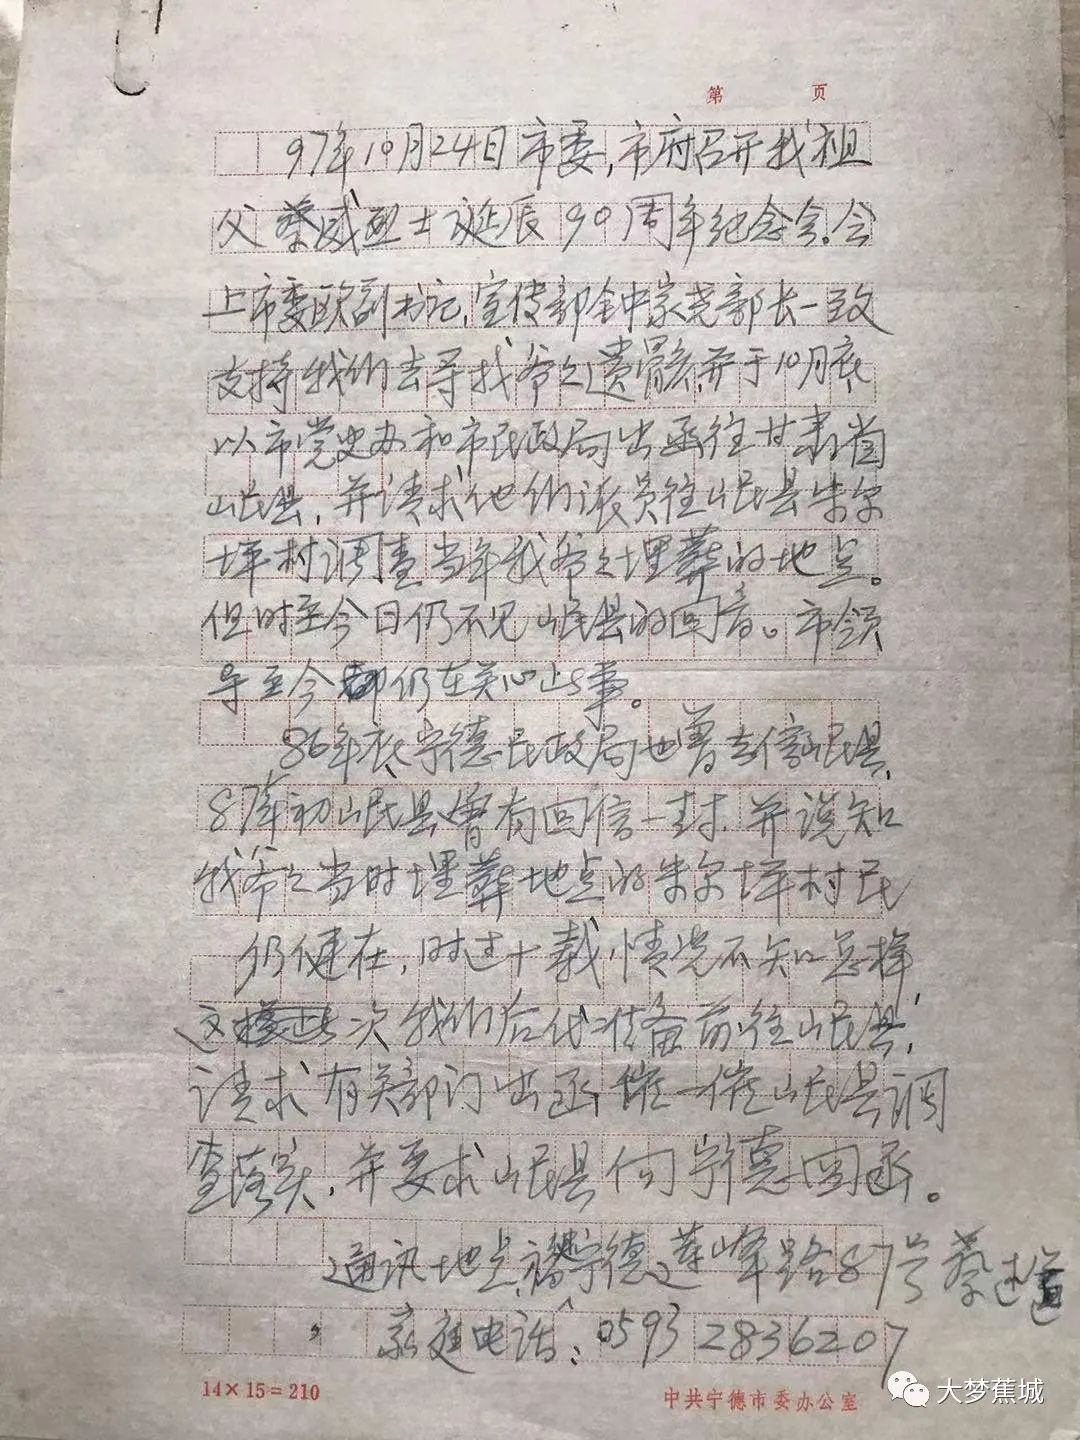 第 页
97年10月24日市委,市府召开我祖
父蔡威烈士诞辰90周年纪念会.会
上市委欧副书记,宣传部钟家尧部长一致
支持我们去寻找爷々遗骸,并于10月底
以市党史办和市民政局出函往甘肃省
岷县,并请求他们派员往岷县朱尔
坪村调查当年我爷々埋葬的地点。
但时至今日仍不见岷县的回音。市领
导至今都仍在关心此事。
86年底宁德民政局也曾去信岷县,
87年初岷县曾有回信一封.并说知
我爷々当时埋葬地点的朱尔坪村民
仍健在,时过十载情况不知怎样,
这次我们后代准备前往岷县,
请求有关部门出函,催一催岷县调
查落实,并要求岷县向宁德回函。
通讯地点福建宁德莲峰路87号蔡述道
家庭电话:0593 2836207
14×15=210
中共宁德市委办公室
大梦蕉城